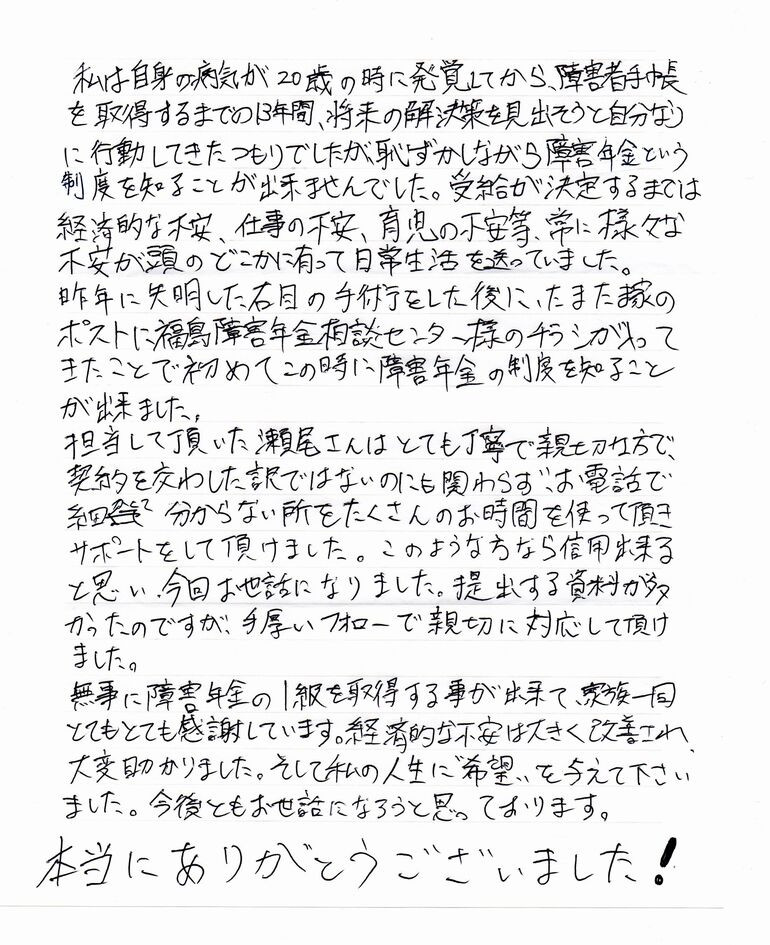 私は自身の病気が20歳の時に発覚してから、障害者手帳
を取得するまでの13年間、将来の解決策を見出そうと自分なり
に行動してきたつもりでしたが、恥ずかしながら障害年金という
制度を知ることが出来ませんでした。受給が決定するまでは
経済的な不安、仕事の不安、育児の不安等、常に様々な
不安が頭のどこかに有って日常生活を送っていました。
昨年に失明した右目の手術をした後に、たまたま家の
ポストに福島障害年金相談センター様のチラシが入って
きたことで初めてこの時に障害年金の制度を知ること
が出来ました。
担当して頂いた瀬尾さんはとても丁寧で親切な方で、
契約を交わした訳ではないのにも関わらず、お電話で
分からない所をたくさんのお時間を使って頂き
サポートをして頂けました。このような方なら信用出来る
と思い、今回お世話になりました。提出する資料が多
かったのですが、手厚いフォローで親切に対応して頂け
ました。
無事に障害年金の1級を取得する事が出来て、家族一同
とてもとても感謝しています。経済的な不安は大きく改善され、
大変助かりました。そして私の人生に"希望"を与えて下さい
ました。今後ともお世話になろうと思っております。
本当にありがとうございました!